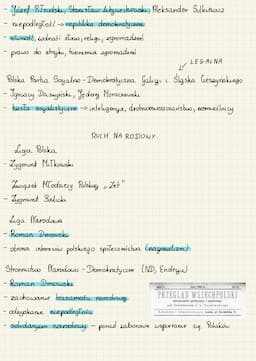 - Józef Piłsudski, Stanisław Wojciechowski, Aleksander Sulkiewicz
- niepodległość → republika demokratyczna
- równość, wolność słowa, religii, zgromadzeń
- prawo do strajku, tworzenia zgromadzeń
LEGALNA
Polska Partia Socjalno-Demokratyczna Galicji i Śląska Cieszyńskiego
- Ignacy Daszyński, Jędrzej Moraczewski
- hasła socjalistyczne → inteligencja, drobnomieszczaństwo, rzemieślnicy
RUCH NARODOWY
Liga Polska
- Zygmunt Miłkowski
Związek Młodzieży Polskiej „Zet"
- Zygmunt Balicki
Liga Narodowa
- Roman Dmowski
- obrona interesów polskiego społeczeństwa (nacjonalizm)
Stronnictwo Narodowo-Demokratyczne (ND, Endecja)
- Roman Dmowski
- zachowanie tożsamości narodowej
- odzyskanie niepodległości
- solidaryzm narodowy – ponad zaborowe wspieranie się Polaków
PRZEGLĄD WSZECHPOLSKI